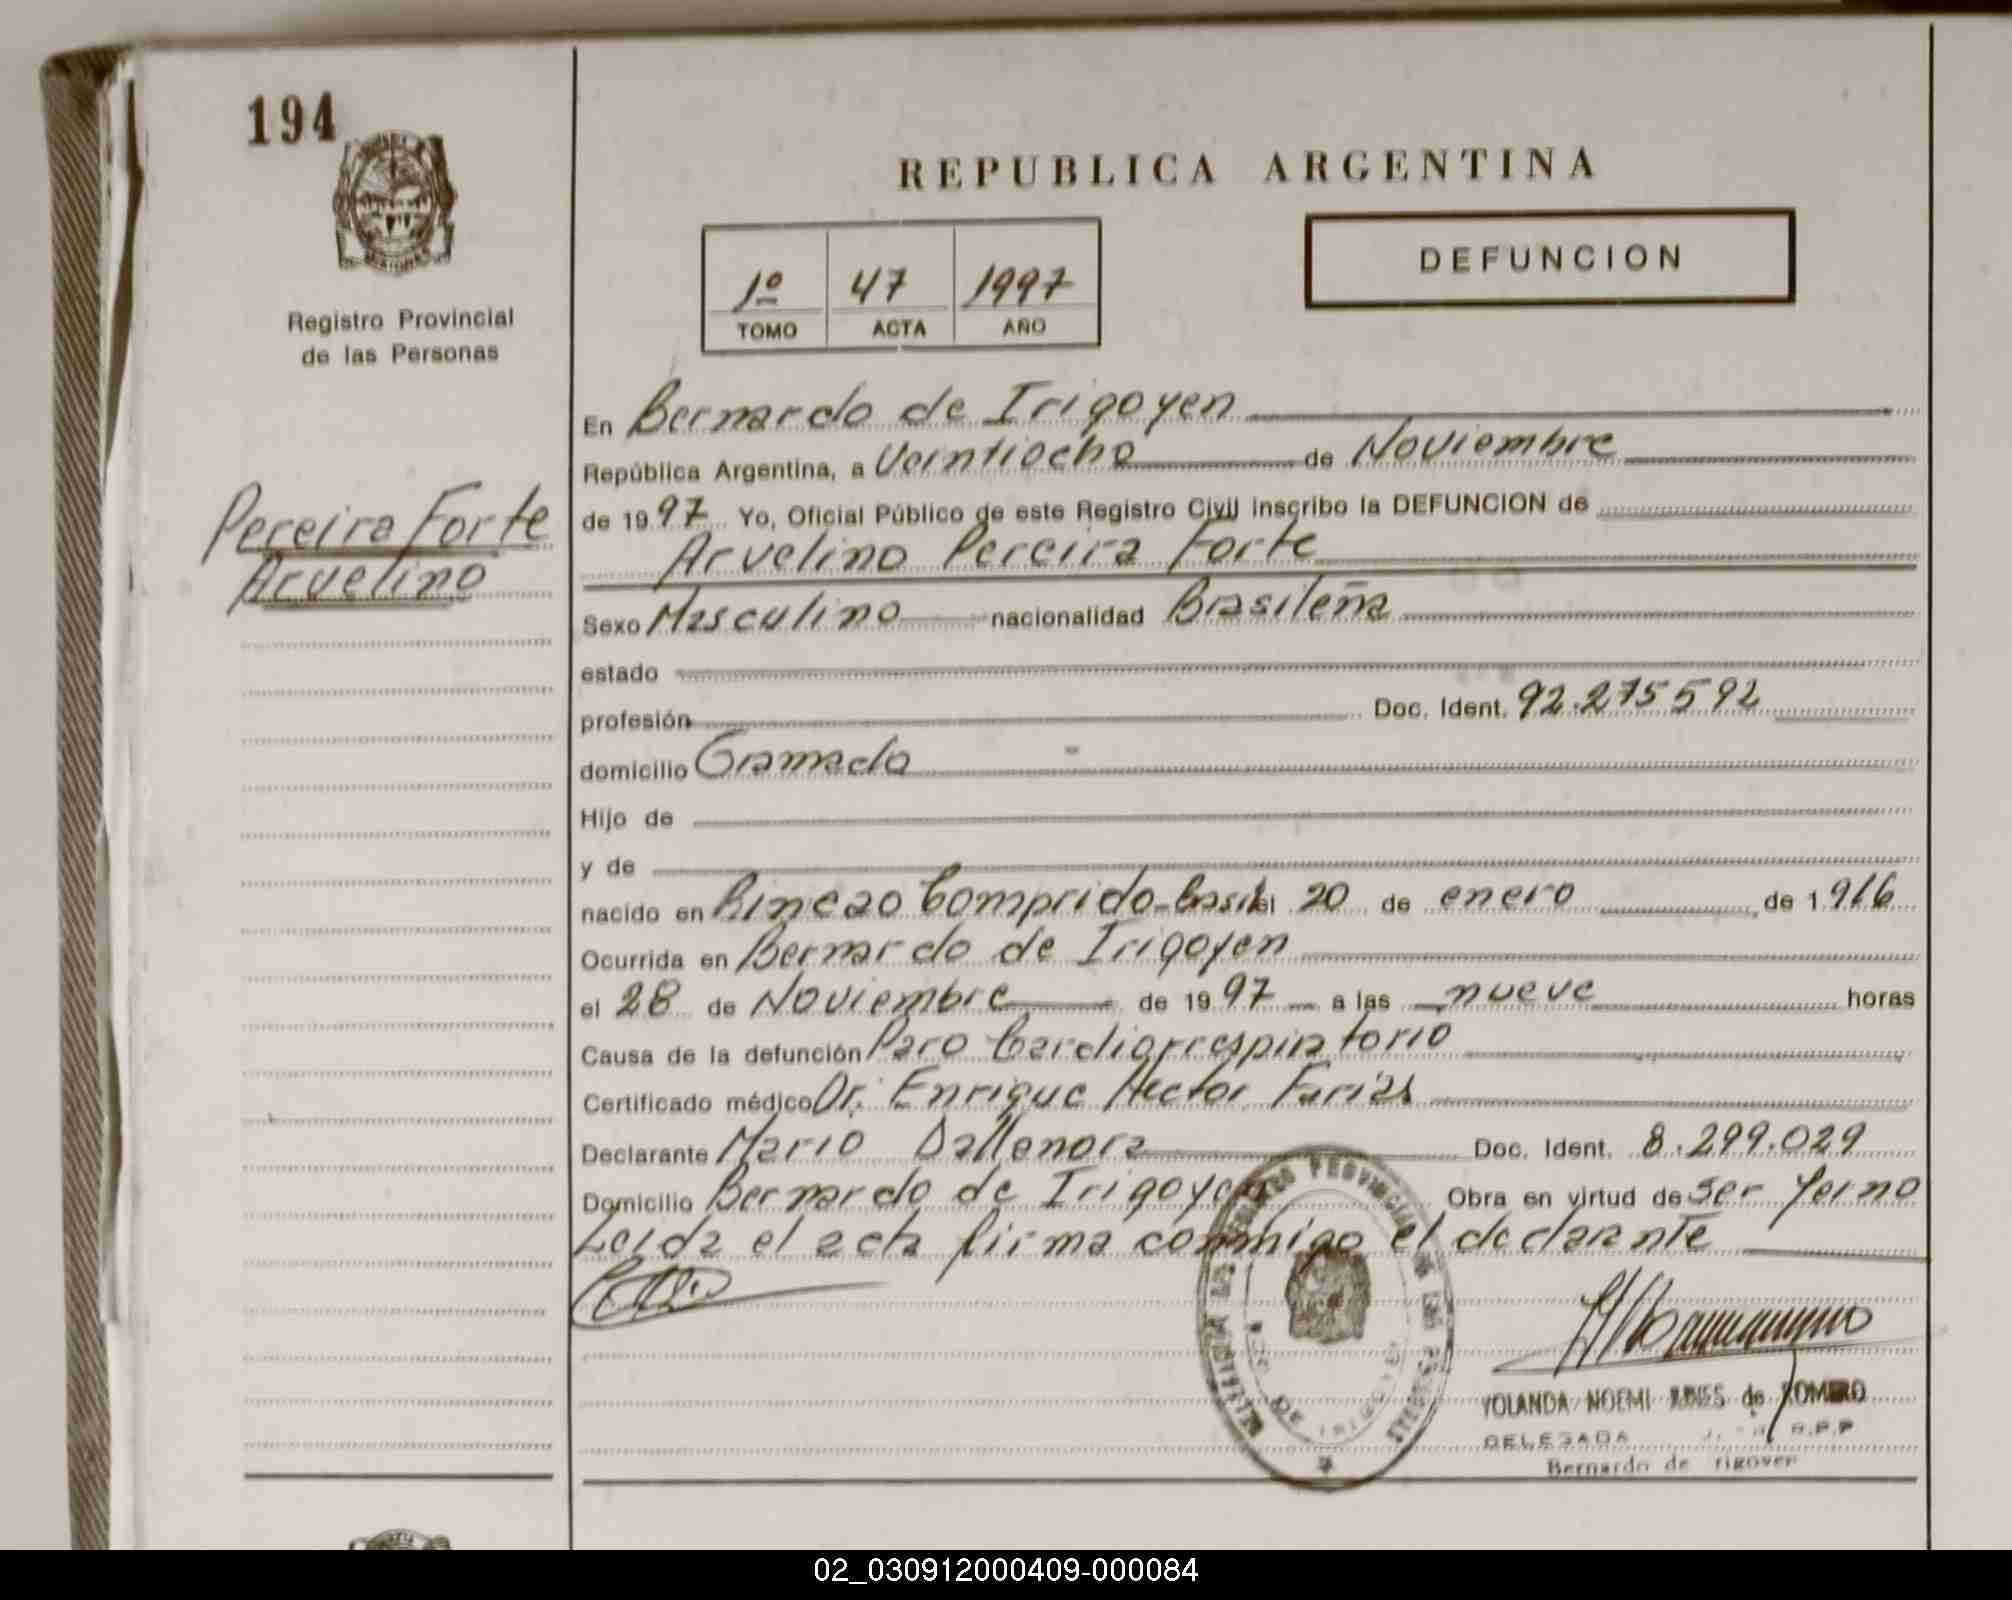 194
REPUBLICA ARGENTINA
1º 47 1997
TOMO ACTA AÑO
DEFUNCION
Registro Provincial
de las Personas
Pereira Forte
Arvelino
En Bernardo de Irigoyen
República Argentina, a Veintiocho de Noviembre
de 1997 Yo, Oficial Público de este Registro Civil inscribo la DEFUNCION de
Arvelino Pereira Forte
Sexo Masculino nacionalidad Brasileña
estado
profesión Doc. Ident. 92.275592
domicilio Gramado
Hijo de
y de
nacido en Rincao Comprido-Brasil el 20 de enero de 1916
Ocurrida en Bernardo de Irigoyen
el 28 de Noviembre de 1997 a las nueve horas
Causa de la defunción Paro Cardiorrespiratorio
Certificado médico Dr. Enrique Hector Farias
Declarante Mario Dallenora Doc. Ident. 8.299.029
Domicilio Bernardo de Irigoyen Obra en virtud de ser Yerno
Leida el acta firma conmigo el declarante
YOLANDA NOEMI de ROMERO
DELEGADA R.P.P
Bernardo de Irigoyen
02_030912000409-000084